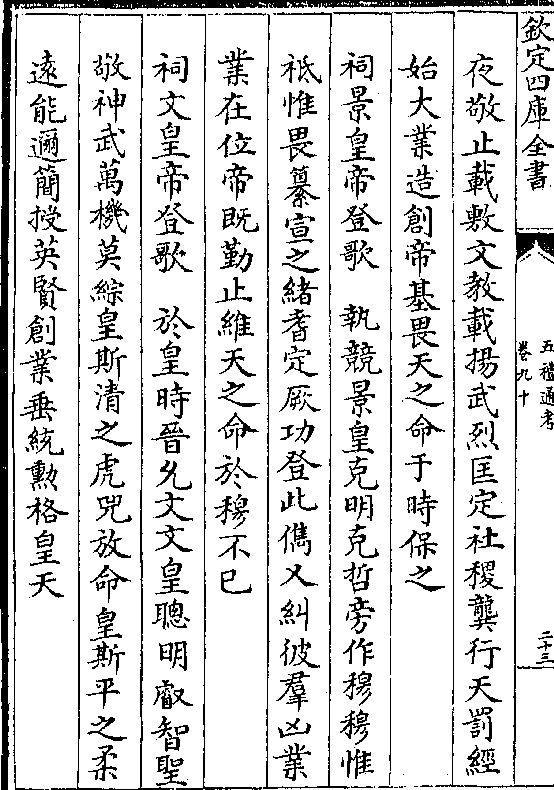 欽定四庫全書
五禮通考
卷九十
二十三
夜敬止載敷文教載揚武烈匡定社稷龔行天罰經
始大業造創帝基畏天之命于時保之
祠景皇帝登歌 執競景皇克明克哲旁作穆穆惟
祇惟畏纂宣之緒耆定厥功登此儁乂糾彼羣凶業
業在位帝既勤止維天之命於穆不已
祠文皇帝登歌 於皇時晉允文文皇聰明叡智聖
敬神武萬機莫綜皇斯清之虎兕放命皇斯平之柔
遠能邇簡授英賢創業垂統勲格皇天